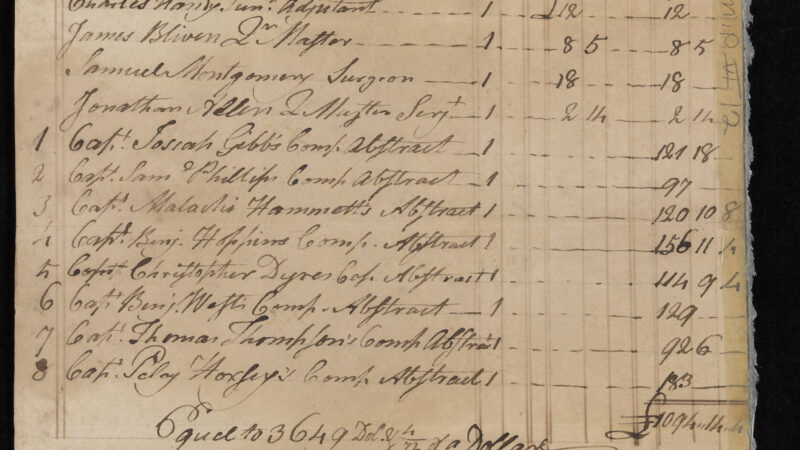 Charles Handy Junr. Adjutant 1 £12 12
James Bliven Qr Master 1 8 5 8 5
Samuel Montgomery Surgeon 1 18 18
Jonathan Allen Q Master Serjt 1 2 14 2 14
1 Capt. Josiah Gibbs Comp Abstract 1 121 18
2 Capt. Saml Phillips Comp Abstract 1 97
3 Capt. Malachi Hammett's Abstract 1 120 10 8
4 Capt. Benj. Hoppins Comp. Abstract 1 156 11 4
5 Capt Christopher Dyres Abstract 1 114 9 4
6 Capt. Benj. Wests Comp. Abstract 1 129
7 Capt. Thomas Thompson's Comp Abstract 1 92 6
8 Capt. Pelig Comp Abstract 1 183
£1094 14 4
Equel to 3649 Dol. & 4/72 of a Dollar